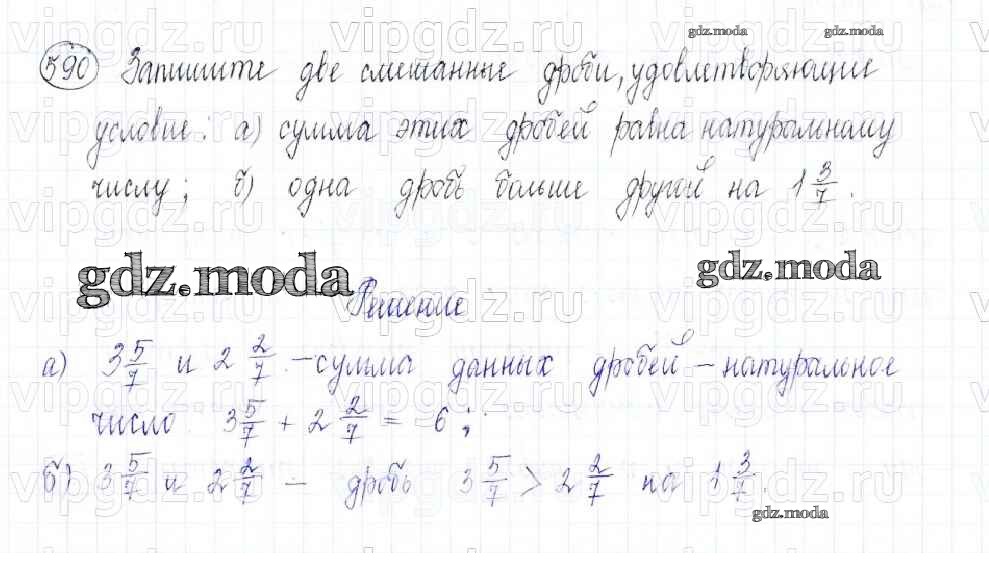 590 Запишите две смешанные дроби, удовлетворяющие
условие: а) сумма этих дробей равна натуральному
числу; б) одна дробь больше другой на 1 3/7.
gdz.moda
gdz.moda gdz.moda
Решение
а) 3 5/7 и 2 2/7 - сумма данных дробей - натуральное
число 3 5/7 + 2 2/7 = 6;
б) 3 5/7 и 2 2/7 - дробь 3 5/7 > 2 2/7 на 1 3/7.
gdz.moda